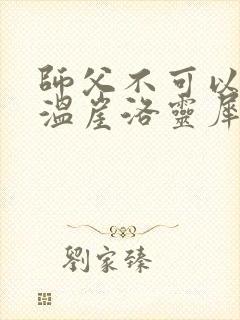 師父不可以
溫崖洛靈犀
劉家臻